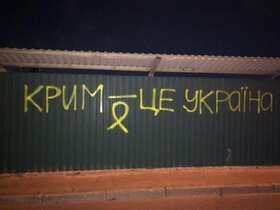 КРИМ – ЦЕ УКРАЇНА